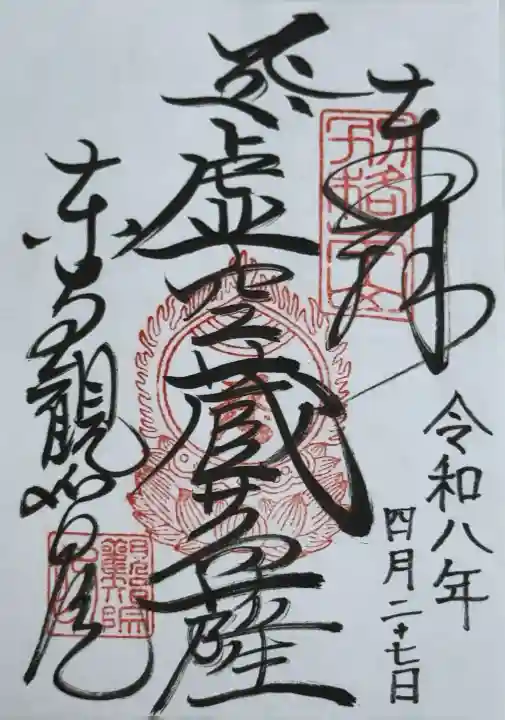 奉拝
令和八年
四月二十七日
虚空蔵菩薩
東寺観智院
別格本山